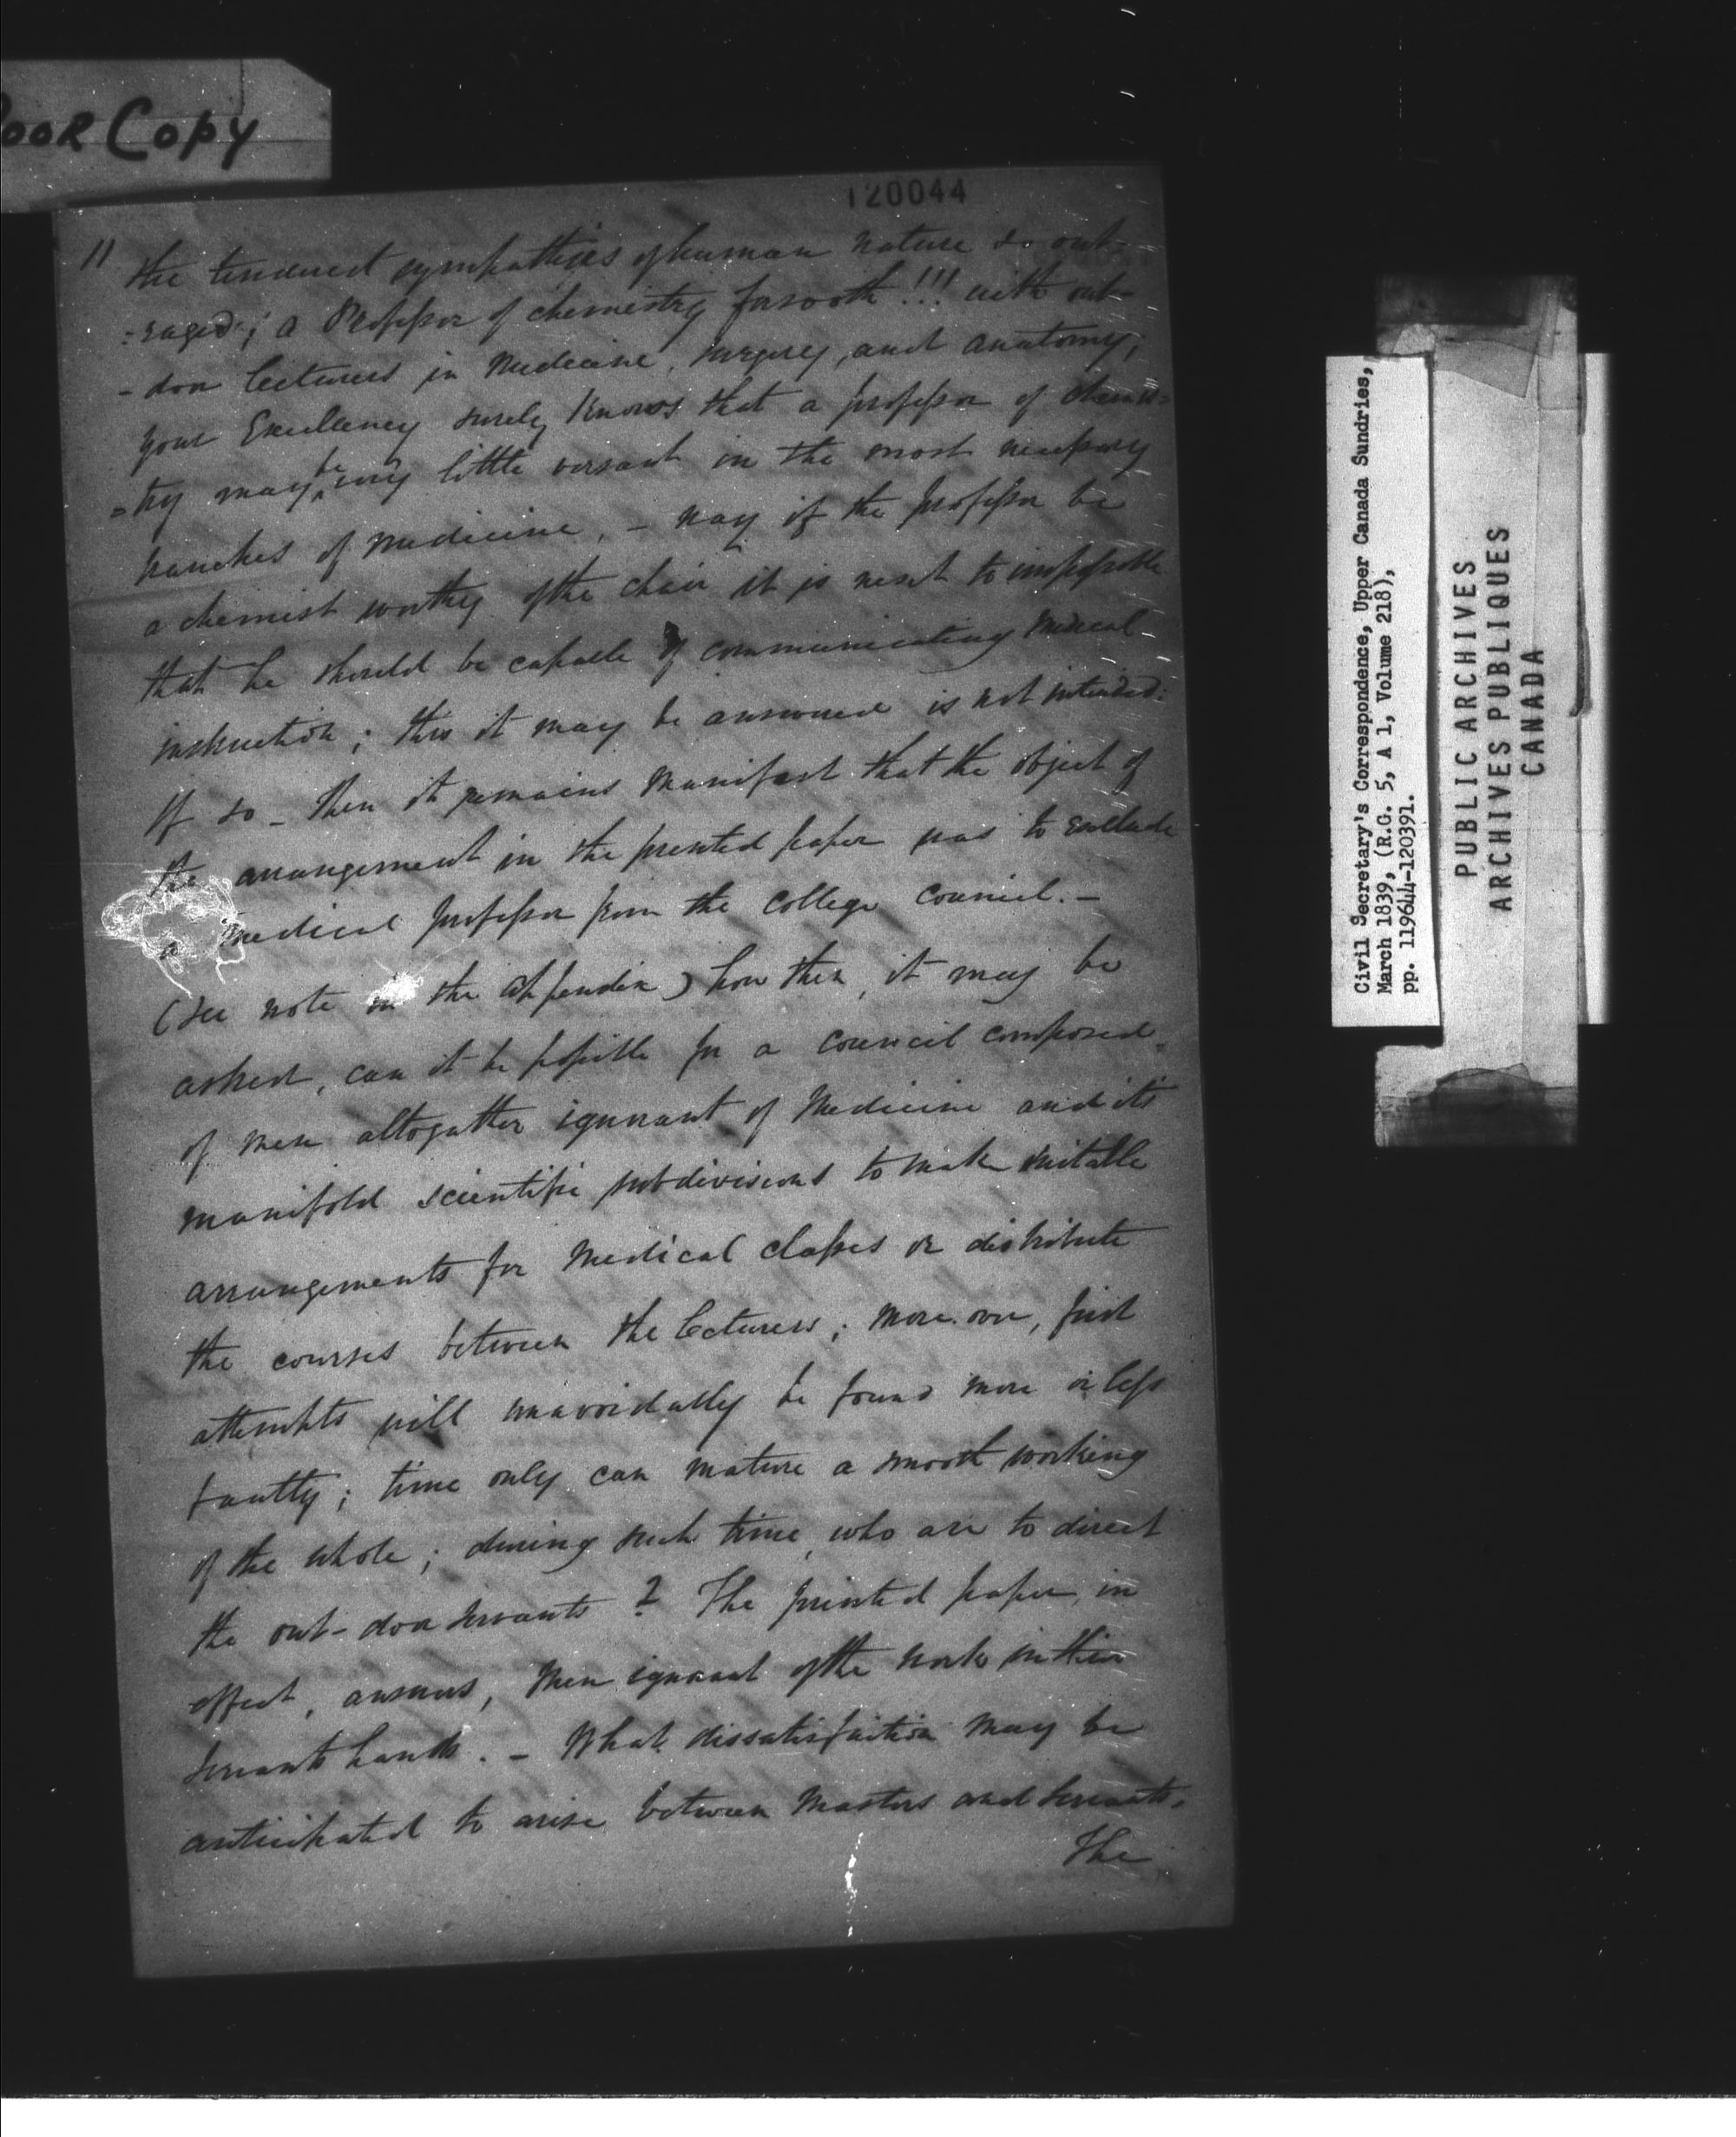 Poor Copy
120044
11
the tenderest sympathies of human nature so out-
-raged; a Professor of chemistry forsooth!!! with out-
-door lecturers in Medicine, surgery, and anatomy;
your Excellency surely knows that a professor of chemis=
=try may be very little versant in the most necessary
branches of medicine, - nay if the professor be
a chemist worthy of the chair it is next to impossible
that he should be capable of communicating Medical
instruction; this it may be answered is not intended:
If so - then it remains manifest that the object of
the arrangement in the printed paper was to exclude
a medical professor from the college council. -
(see note in the appendix) how then, it may be
asked, can it be possible for a council composed
of men altogather ignorant of Medicine and its
manifold scientific subdivisions to make suitable
arrangements for Medical classes or distribute
the courses between the lecturers; more over, first
attempts will unavoidably be found more or less
faulty; time only can mature a smooth working
of the whole; during such time, who are to direct
the out-door servants? The printed paper, in
effect, answers, Men ignorant of the work in their
servants hands. - What dissatisfaction may be
anticipated to arise between Masters and Servants.
The
Civil Secretary's Correspondence, Upper Canada Sundries,
March 1839, (R.G. 5, A 1, Volume 218),
pp. 119644-120391.
PUBLIC ARCHIVES
ARCHIVES PUBLIQUES
CANADA